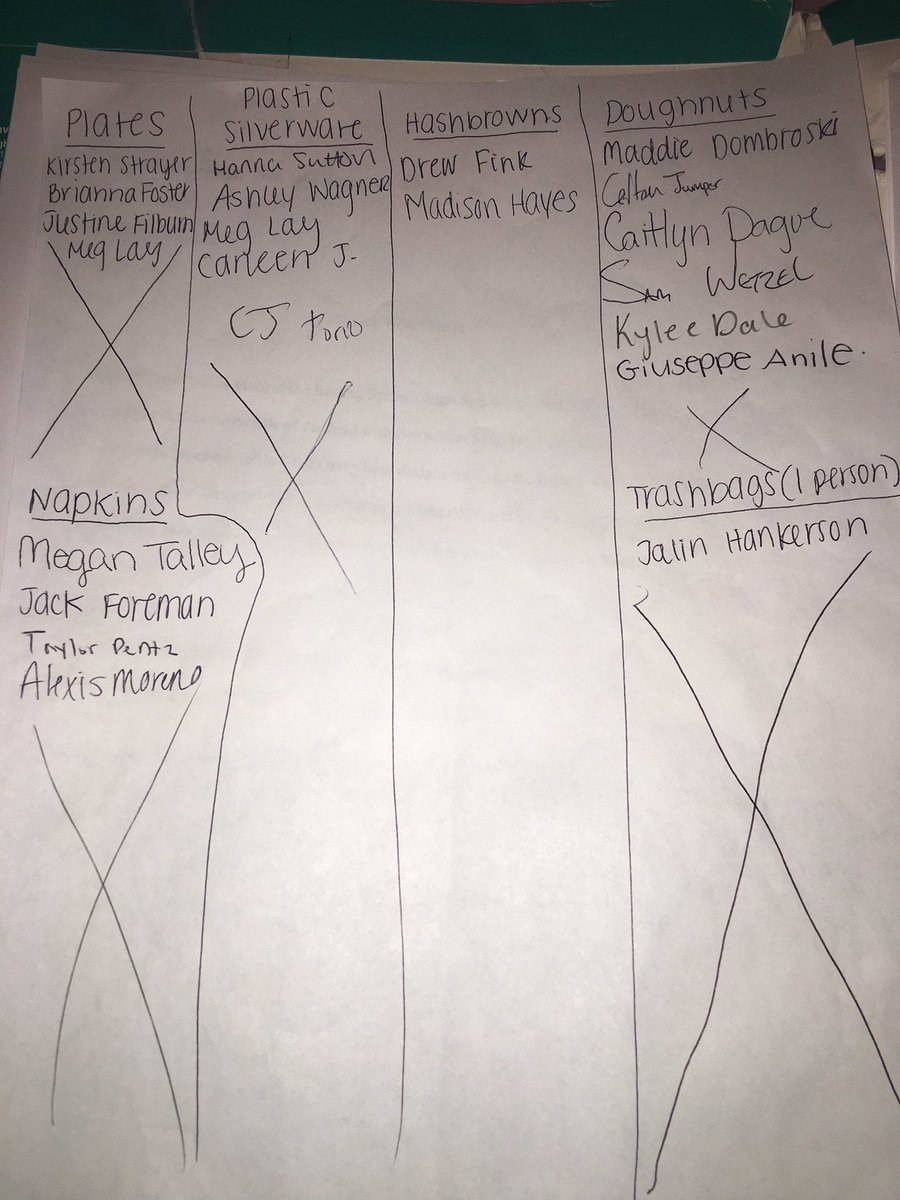 Plates
Kirsten Strayer
Brianna Foster
Justine Filburn
Meg Lay
Napkins
Megan Talley
Jack Foreman
Taylor Pentz
Alexis Moreno
Plastic
Silverware
Hanna Sutton
Ashley Wagner
Meg Lay
Careen J.
CJ
Hashbrowns
Drew Fink
Madison Hayes
Doughnuts
Maddie Dombroski
Jumper
Caitlyn Dague
Sam Wetzel
Kylee Dale
Giuseppe Anile.
Trashbags (1 person)
Jalin Hankerson